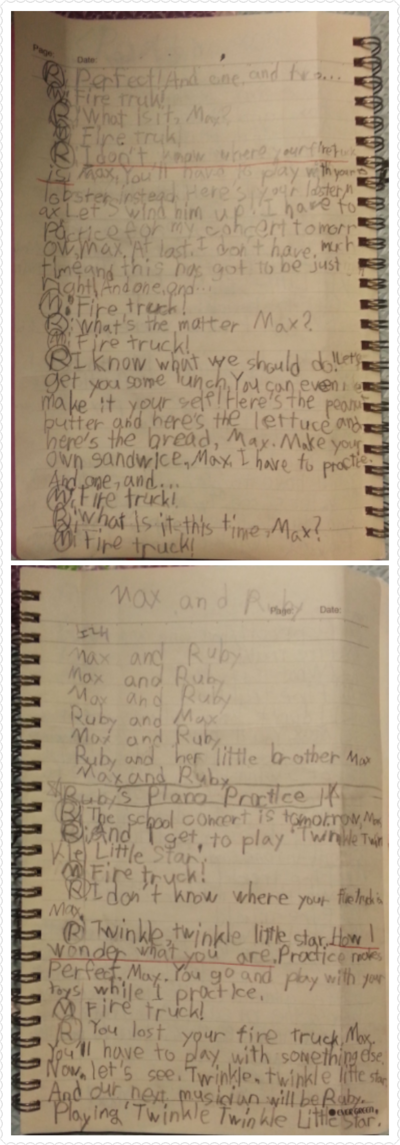 Page: Date:
R: Perfect! And one, and two...
Fire truk!
What is it, Max?
Fire truk!
I don't know where your firetruck
is Max, You'll have to play with your
lobster instead. Here's your lobster, M
ax. Let's wind him up! I have to
for my concert tomorr
ow, Max. At last, I don't have much
time and this has got to be just
right! And one, and...
M: Fire truck!
R: What's the matter Max?
M: Fire truck!
R: I know what we should do! Let's
get you some lunch. You can even
make it your self! Here's the peanut
butter and here's the lettuce and
here's the bread, Max. Make your
own sandwice, Max, I have to practice.
And one, and...
M: Fire truck!
R: What is it this time, Max?
M: Fire truck!
Max and Ruby
Page: Date:
노래
Max and Ruby
Max and Ruby
Max and Ruby
Ruby and Max
Max and Ruby
Ruby and her little brother Max
Max and Ruby
Ruby's Piano Practice
R: The school concert is tomorrow, Max
R: And I get to play 'Twinkle Twin
kle Little Star'.
M: Fire truck!
R: I don't know where your firetruck is
Max.
R: Twinkle, twinkle little star. How I
wonder what you are. Practice makes
Perfect, Max. You go and play with your
toys while I practice.
M: Fire truck!
R: You lost your fire truck, Max.
You'll have to play with something else.
Now, let's see. Twinkle, twinkle little star.
And our next musician will be Ruby.
Playing 'Twinkle Twinkle Little Star.